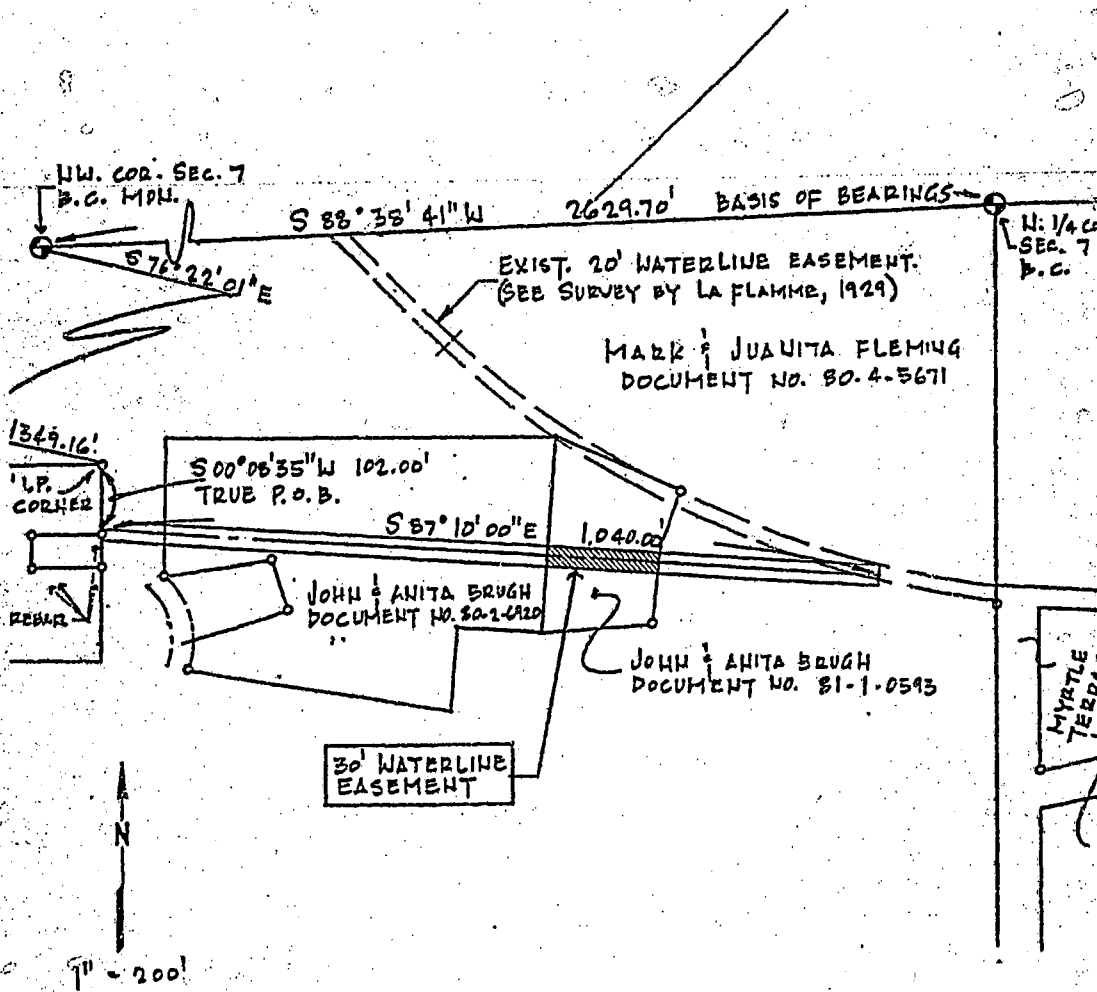 NW. COR. SEC. 7
B.C. MON.
S 88° 38' 41" W 2629.70' BASIS OF BEARINGS
N. 1/4 CO
SEC. 7
B.C.
S 76° 22' 01" E
EXIST. 20' WATERLINE EASEMENT.
(SEE SURVEY BY LA FLAMME, 1929)
MARK & JUANITA FLEMING
DOCUMENT NO. 80.4-5671
1349.16'
I.P.
CORNER
S 00° 08' 35" W 102.00'
TRUE P.O.B.
S 87° 10' 00" E 1,040.00'
REBAR
JOHN & ANITA BRUGH
DOCUMENT NO. 80-2-6920
JOHN & ANITA BRUGH
DOCUMENT NO. 81-1-0593
MYRTLE
30' WATERLINE
EASEMENT
N
1" - 200'